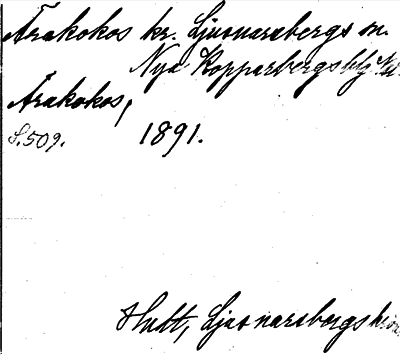 Årakokos kr. Ljusnarsbergs sn.
Nya Kopparbergs blg
Årakokos,
S. 509. 1891.
Hult, Ljusnarsbergs